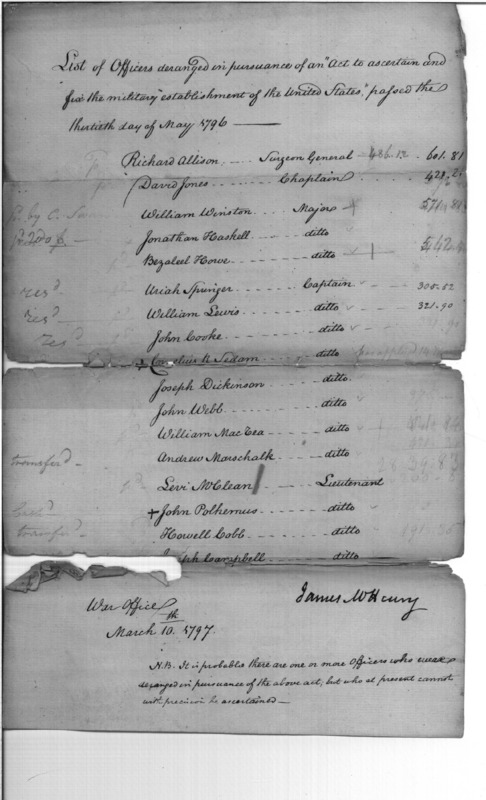 List of Officers deranged in pursuance of an "Act to ascertain and
fix the military establishment of the United States," passed the
thertieth day of May 1796 —
Richard Allison - - - Surgeon General - 486.12 . 601.81
David Jones - - - Chaplain 428.
William Winston - - Major
Jonathan Haskell - - ditto
Bezaleel Howe - - - ditto
resd Uriah Springer - - - Captain 300.02
resd William Lewis - - - ditto 321.90
resd John Cooke - - - ditto
+ Cornelius R Sedam - - - ditto
Joseph Dickinson - - - ditto
John Webb - - - ditto
William MacRea - - - ditto
transferd - Andrew Marschalk - - - ditto
Levi McClean Lieutenant
+ John Polhemus - - - ditto
transferd - Howell Cobb - - - ditto
Joseph Campbell - - - ditto
James McHenry
War Office
March 10th. 1797.
N.B. It is probable there are one or more Officers who were
deranged in pursuance of the above act; but who at present cannot
with precision be ascertained —